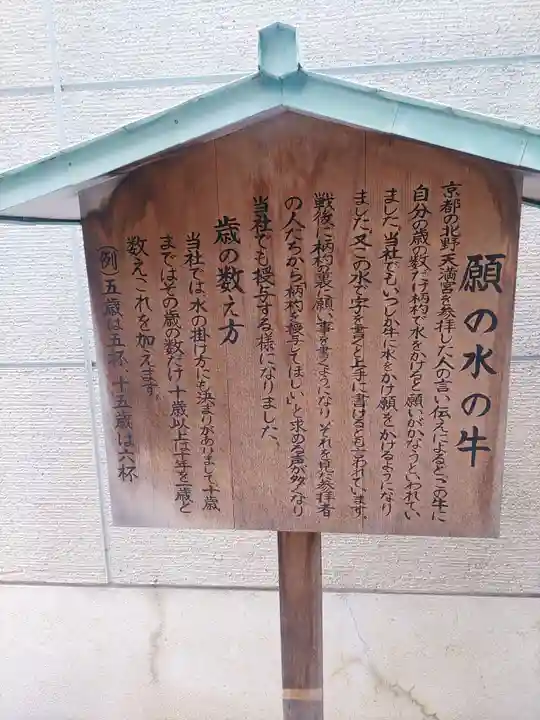 願の水の牛
京都の北野天満宮を参拝した人の言い伝えによるとこの牛に
自分の歳の数だけ柄杓で水をかけると願いがかなうといわれてい
ました、当社でもいつしか牛に水をかけ願をかけるようになり
ました。又この水で字を書くと上手に書けるとも言われています。
戦後に柄杓の裏に願い事を書くようになり、それを見た参拝者
の人たちから「柄杓を授与してほしい」と求める声が多くなり
当社でも授与する様になりました。
歳の数え方
当社では、水の掛け方にも決まりがありまして、十歳
まではその歳の数だけ、十歳以上は十年を一歳と
数え、これを加えます。
(例)五歳は五杯、十五歳は六杯